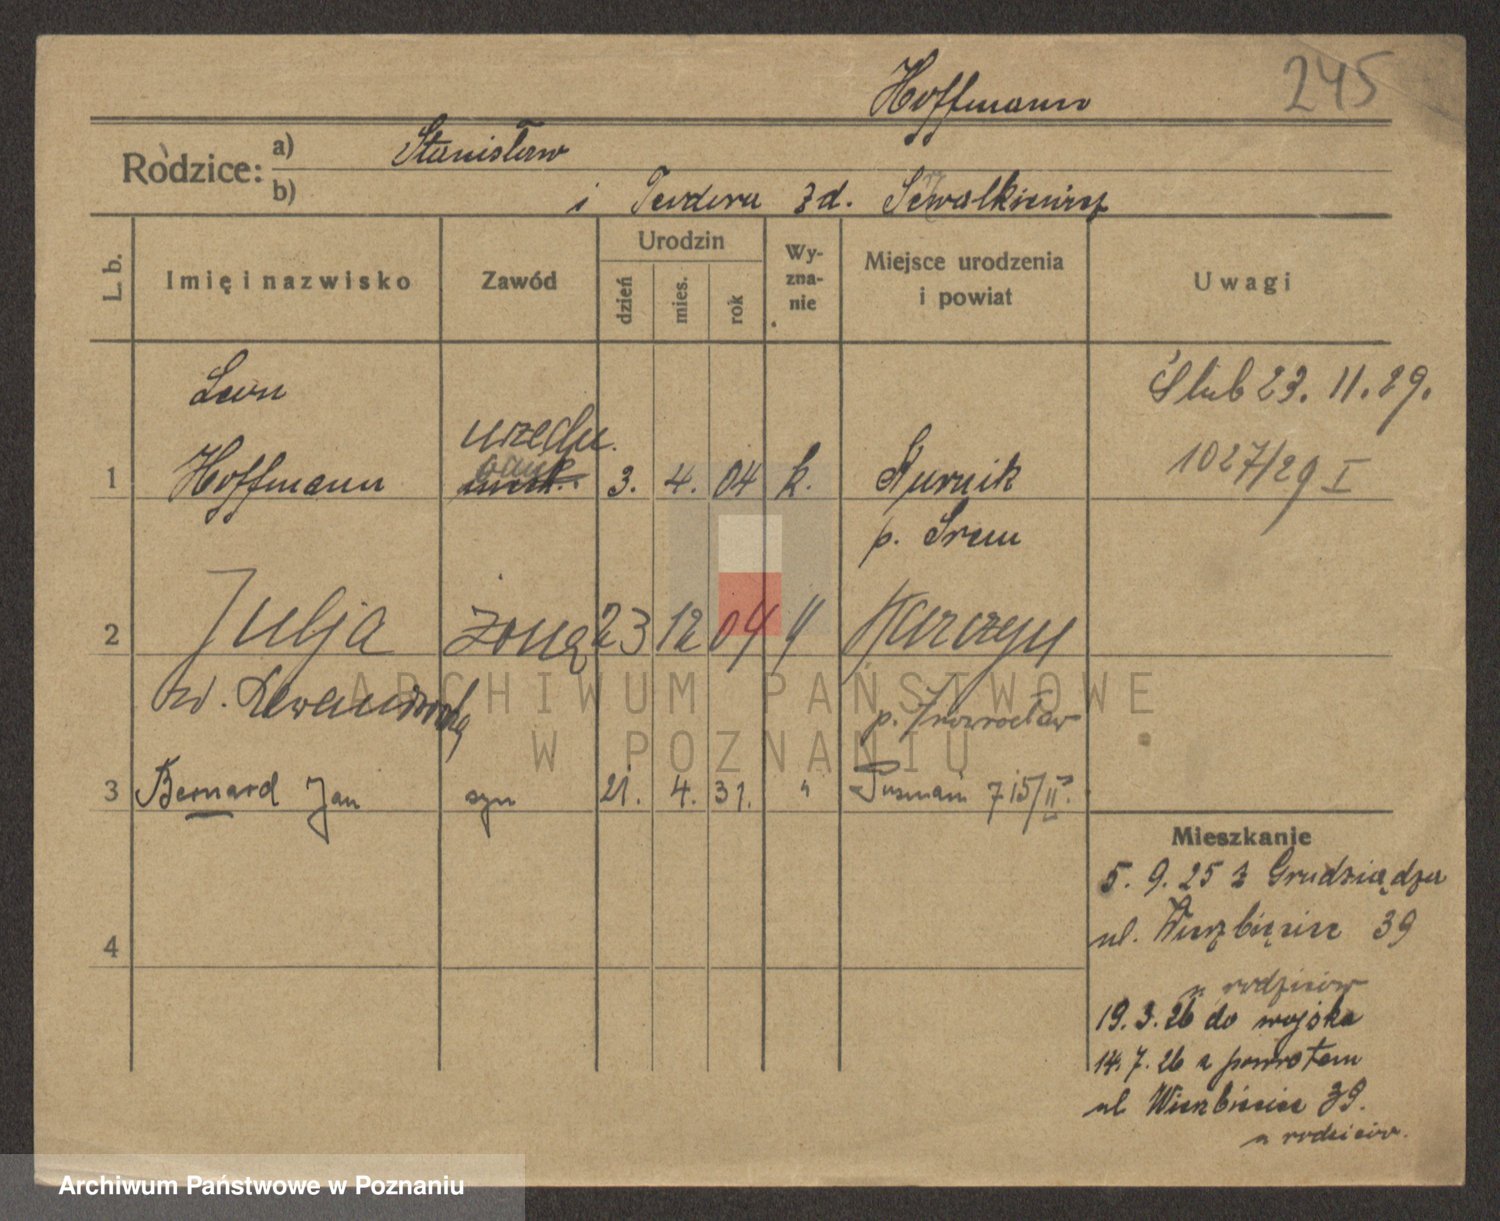 Hoffmann
245
Rodzice: a) Stanisław
b) i Teodora z d. Szwalkiewicz
L. b.
Imię i nazwisko
Zawód
Urodzin
dzień
mies.
rok
Wy-
zna-
nie
Miejsce urodzenia
i powiat
Uwagi
Leon
Ślub 23. 11. 29.
urzędn.
1 Hoffmann 3. 4. 04 k. Kurnik
1027/29 I
p. Śrem
2 Julja żona 23 12 04 " Parczyn
zd. Lewandowska
p. Inowrocław
3 Bernard Jan syn 21. 4. 31. " Poznań 715/II.
4
Mieszkanie
5. 9. 25 z Grudziądza
ul. Wierzbięcice 39
u rodziców
19. 3. 26 do wojska
14. 7. 26 z powrotem
ul Wierzbięcice 39.
u rodziców.
ARCHIWUM PAŃSTWOWE
W POZNANIU
Archiwum Państwowe w Poznaniu